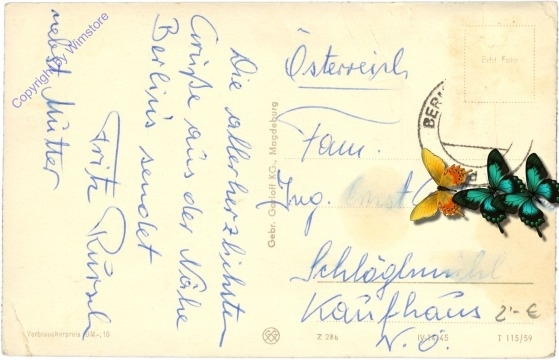 Die allerherzlichsten
Grüße aus der Nähe
Berlins sendet
Fritz
nebst Mutter
Copyright by Wimstore
Gebr. Garloff KG., Magdeburg
Echt Foto
Österreich
Fam.
Ing. Ernst
Schlöglmühl
Kaufhaus
N.Ö.
2'- €
BER
Verbraucherpreis DM -,10
Z 286
IV-14-45
T 115/59